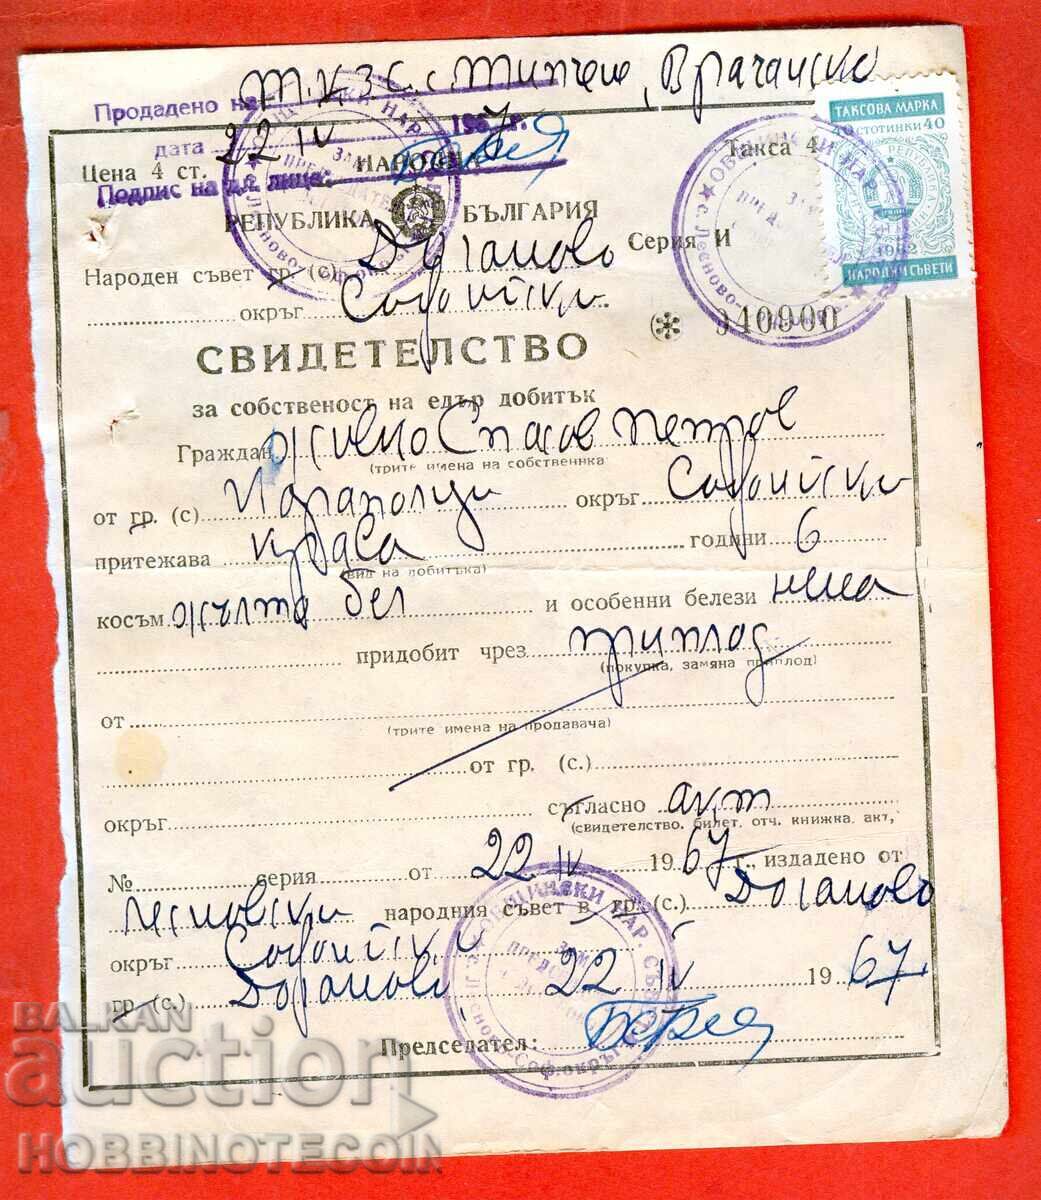 Т.К.З.С. с. Типчене, Врачанско
Продадено на
дата 22 IV 1967 г.
Цена 4 ст. НАРОДНА Такса 4
Подпис на д.л. лице:
РЕПУБЛИКА БЪЛГАРИЯ
ТАКСОВА МАРКА
40 СТОТИНКИ 40
1952
НАРОДНИ СЪВЕТИ
Народен съвет гр. (с) Доганово Серия И
окръг Софийски
040900
СВИДЕТЕЛСТВО
за собственост на едър добитък
Граждан Живко Спасов Петров
(трите имена на собственика
от гр. (с) окръг Софийски
притежава крава години 6
(вид на добитъка)
косъм жълто бел и особенни белези нема
придобит чрез приплод
(покупка, замяна приплод)
от
(трите имена на продавача)
от гр. (с.)
окръг съгласно акт
(свидетелство. билет. отч. книжка. акт,
№ серия от 22 IV 1967 г., издадено от
Лесновски народния съвет в гр. (с.) Доганово
окръг Софийски
гр. (с.) Доганово 22 IV 1967
Председател:
BALKAN
auction
HOBBINOTECOIN